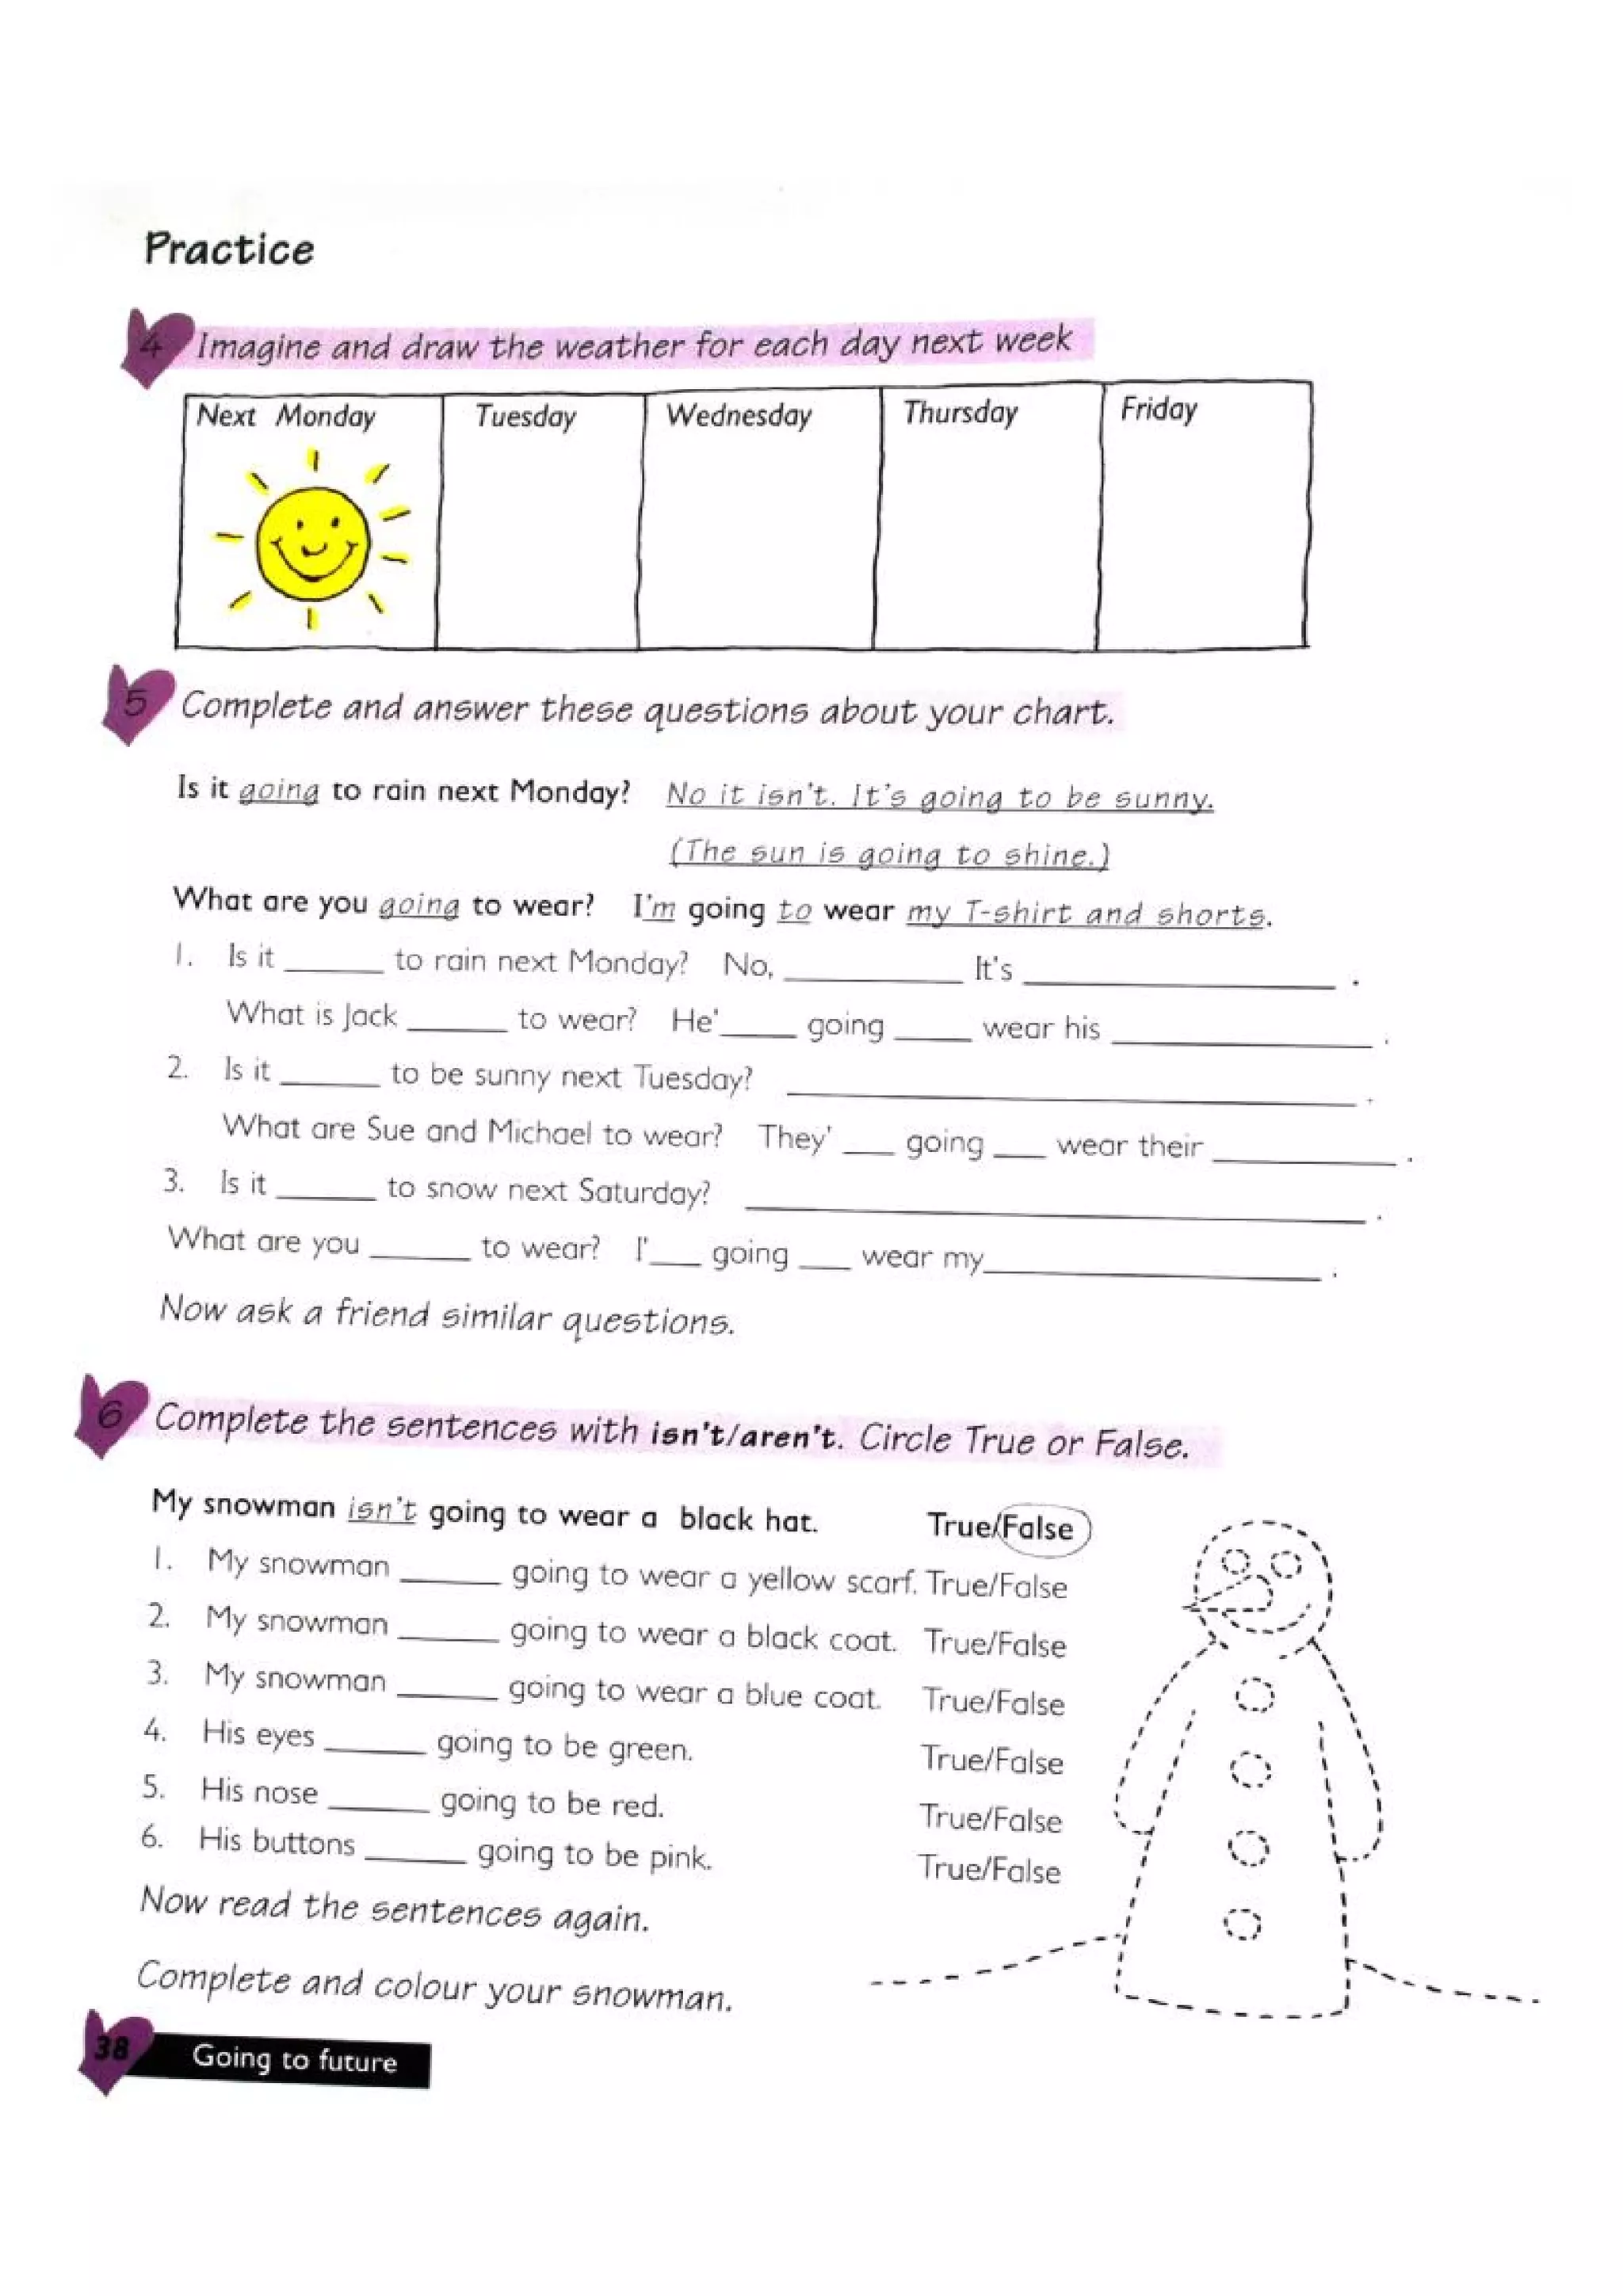 Practice
4 Imagine and draw the weather for each day next week
Next Monday Tuesday Wednesday Thursday Friday
5 Complete and answer these questions about your chart.
Is it going to rain next Monday? No it isn't. It's going to be sunny.
(The sun is going to shine.)
What are you going to wear? I'm going to wear my T-shirt and shorts.
1. Is it ______ to rain next Monday? No, ___________ It's ___________________ .
What is Jack ______ to wear? He'_____ going _____ wear his ________________ .
2. Is it ______ to be sunny next Tuesday? ___________________________________ .
What are Sue and Michael to wear? They' ___ going ___ wear their ___________ .
3. Is it ______ to snow next Saturday? ______________________________________ .
What are you ______ to wear? I'___ going ___ wear my_____________________ .
Now ask a friend similar questions.
6 Complete the sentences with isn't/aren't. Circle True or False.
My snowman isn't going to wear a black hat. True/False
1. My snowman ______ going to wear a yellow scarf. True/False
2. My snowman ______ going to wear a black coat. True/False
3. My snowman ______ going to wear a blue coat. True/False
4. His eyes ______ going to be green. True/False
5. His nose ______ going to be red. True/False
6. His buttons ______ going to be pink. True/False
Now read the sentences again.
Complete and colour your snowman.
38 Going to future